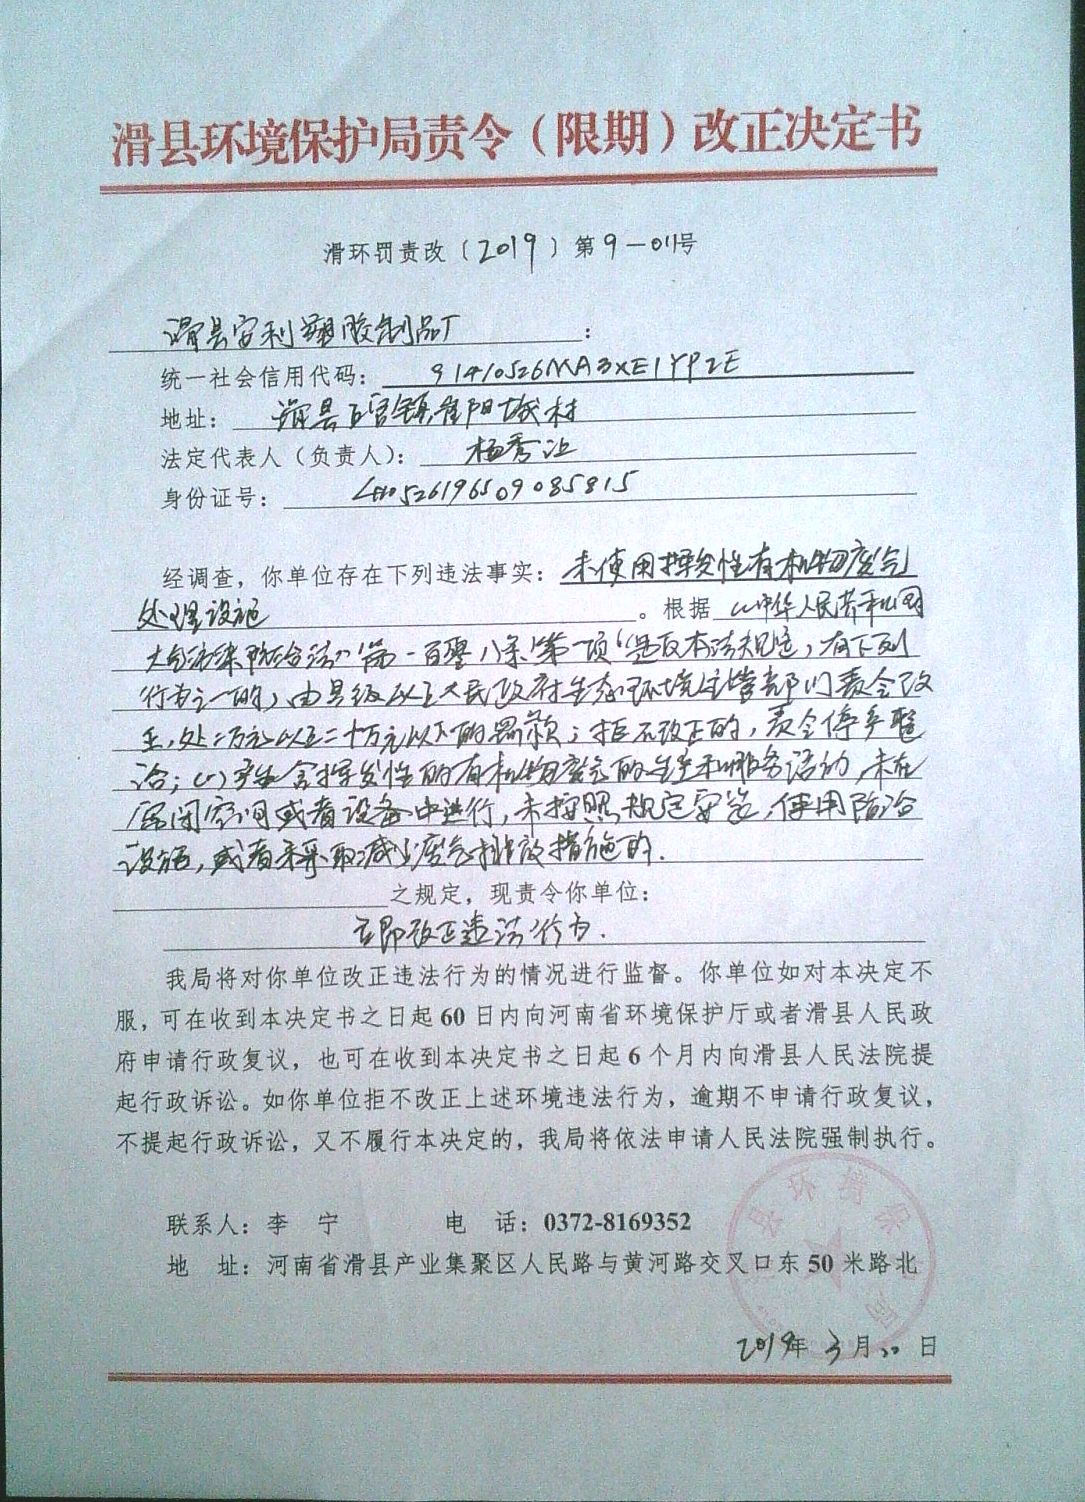 滑县环境保护局责令（限期）改正决定书
滑环罚责改〔2019〕第9—011号
滑县安利塑胶制品厂：
统一社会信用代码：91410526MA3XE1YP2E
地址：滑县 镇 阳城村
法定代表人（负责人）：杨秀
身份证号：410526196509085815
经调查，你单位存在下列违法事实：未使用挥发性有机物废气
处理设施。根据《中华人民共和国
大气污染防治法》第一百零八条第一项“违反本法规定，有下列
行为之一的，由县级以上人民政府生态环境主管部门责令改
正，处二万元以上二十万元以下的罚款；拒不改正的，责令停产整
治；（一）产生含挥发性的有机物废气的生产和服务活动，未在
密闭空间或者设备中进行，未按照规定安装、使用防治
设施，或者未采取减少废气排放措施的.
之规定，现责令你单位：
立即改正违法行为.
我局将对你单位改正违法行为的情况进行监督。你单位如对本决定不
服，可在收到本决定书之日起60日内向河南省环境保护厅或者滑县人民政
府申请行政复议，也可在收到本决定书之日起6个月内向滑县人民法院提
起行政诉讼。如你单位拒不改正上述环境违法行为，逾期不申请行政复议，
不提起行政诉讼，又不履行本决定的，我局将依法申请人民法院强制执行。
联系人：李 宁 电 话：0372-8169352
地 址：河南省滑县产业集聚区人民路与黄河路交叉口东50米路北
县环境保 局
2019年3月 日